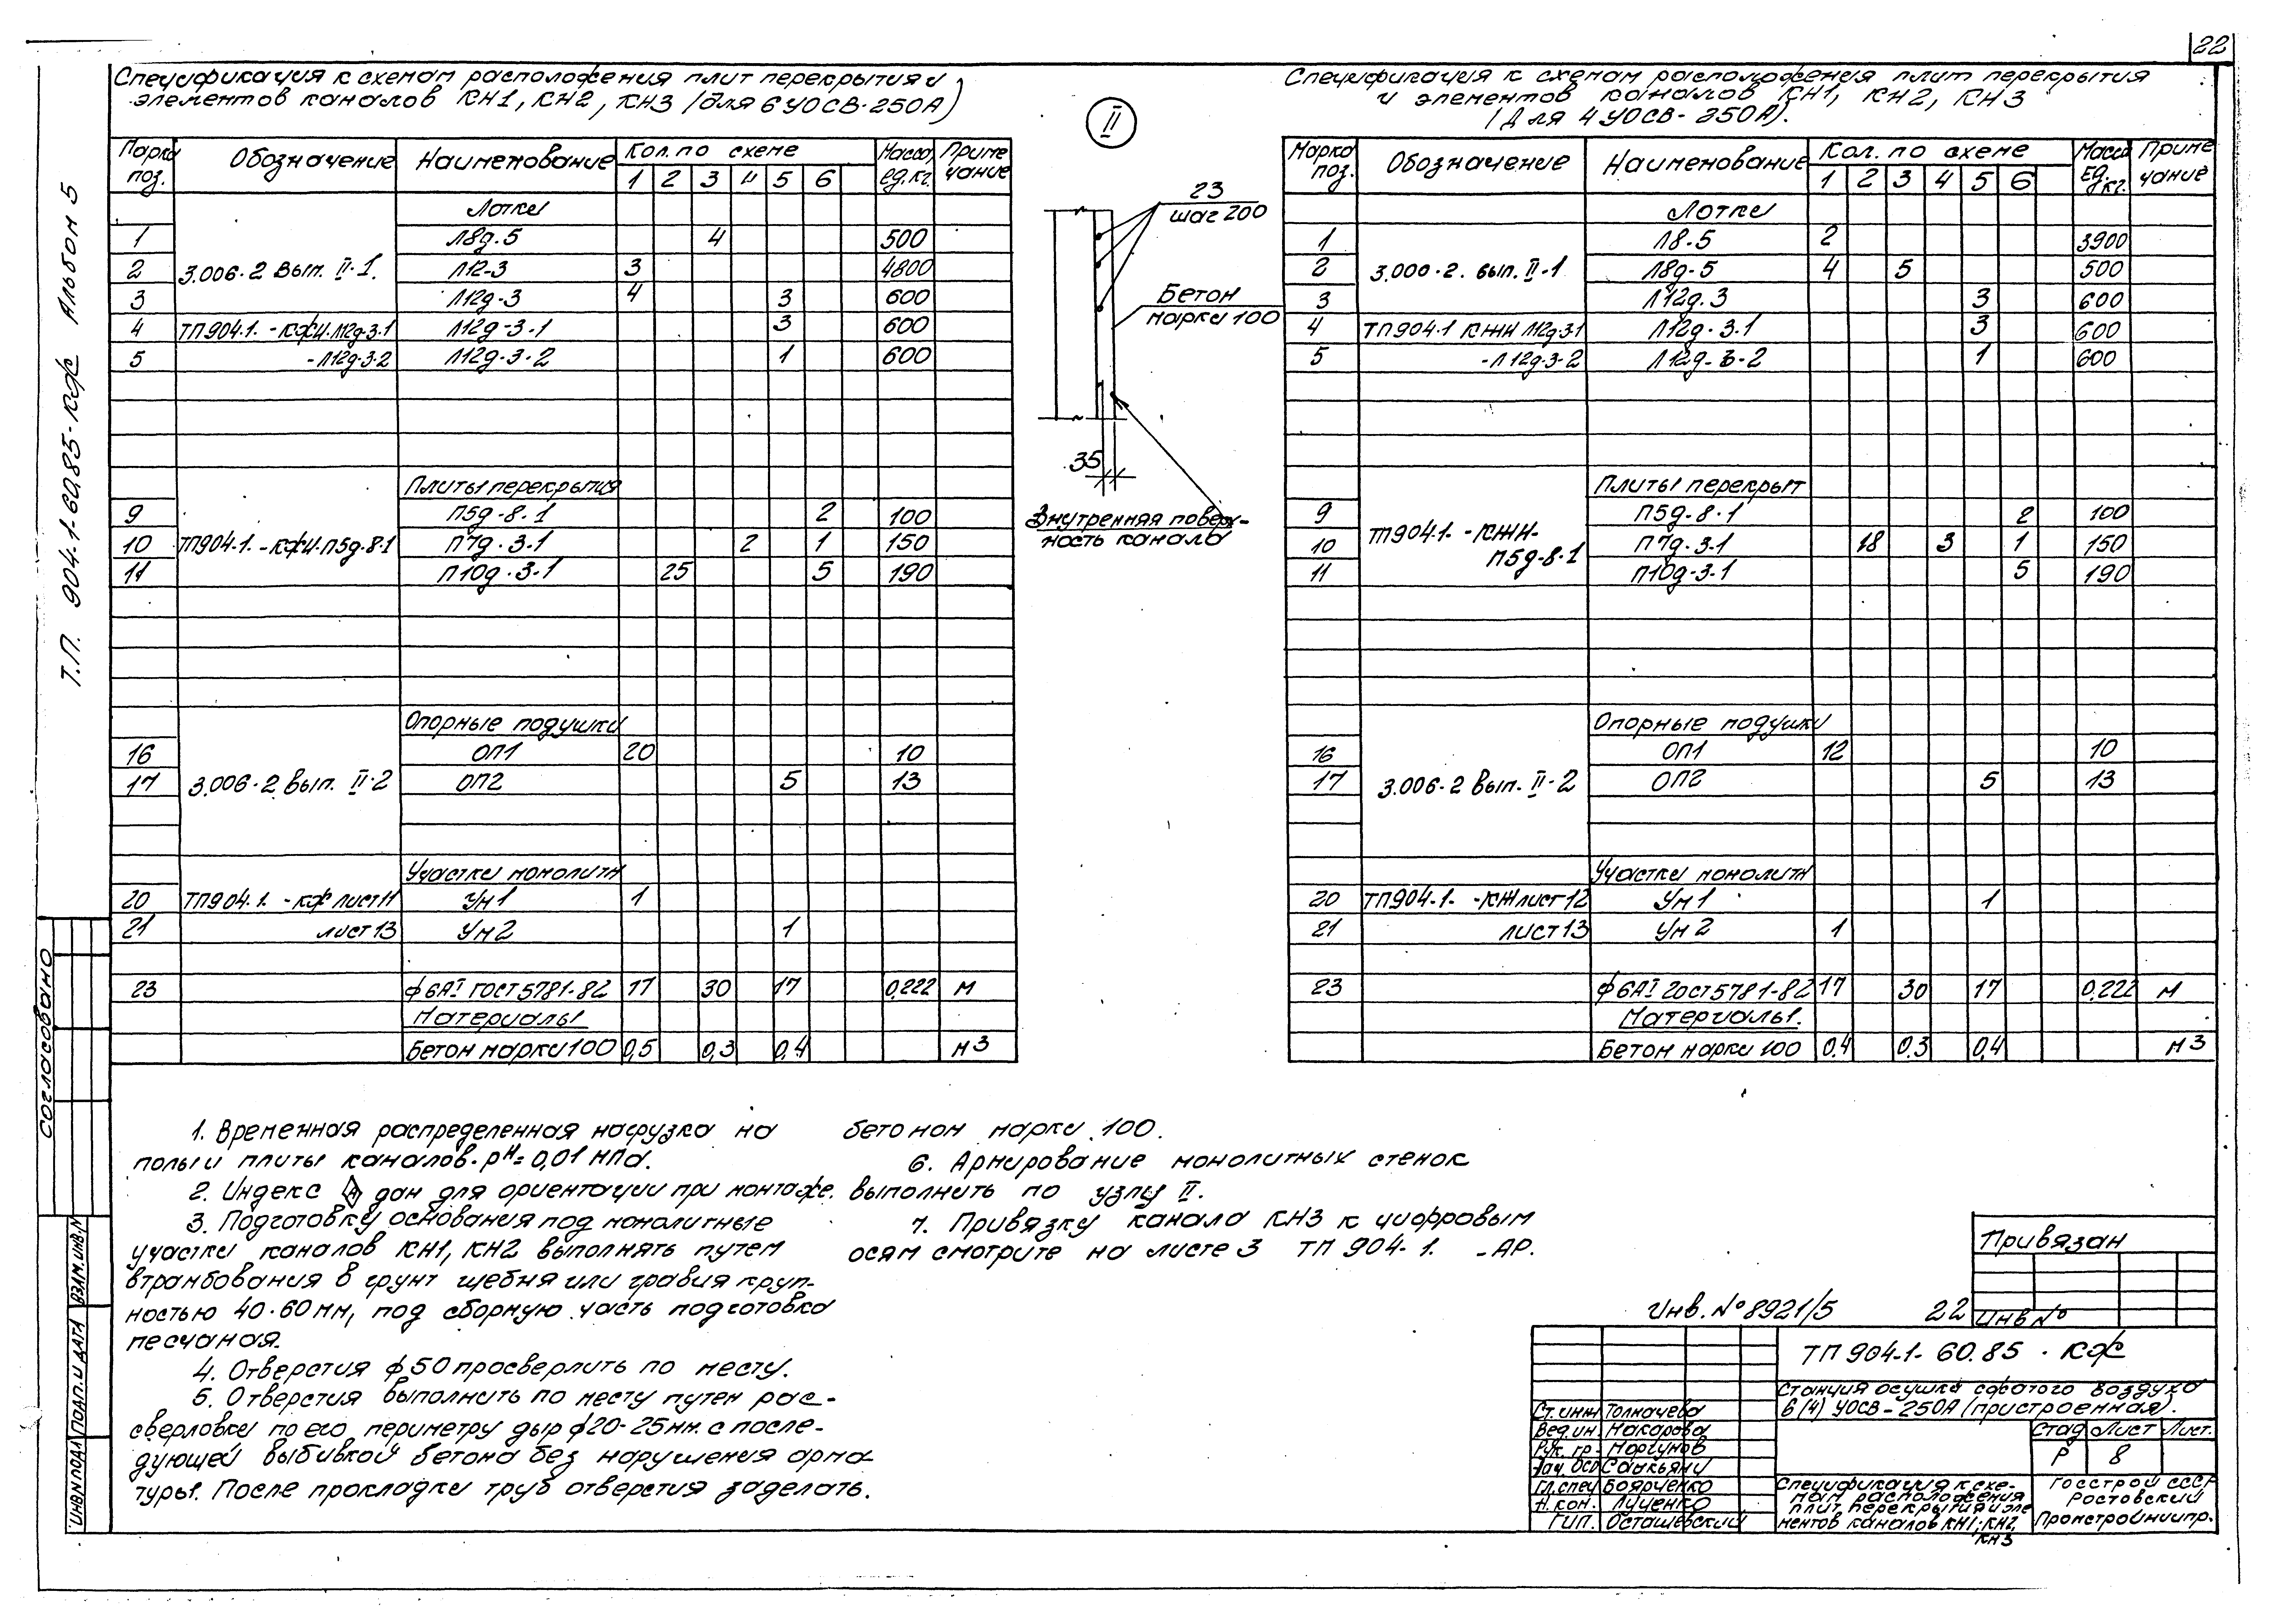 22
Т.П. 904-1-60.85-КЖ Альбом 5
Спецификация к схемам расположения плит перекрытия и
элементов каналов КН1, КН2, КН3 /для 6УОСВ-250А)
Марка поз. Обозначение Наименование Кол. по схеме Масса, ед. кг. Приме чание
1 2 3 4 5 6
Лотки
1 Л8д-5 4 500
2 3.006-2 Вып. II-1. Л12-3 3 4800
3 Л12д-3 4 3 600
4 ТП904.1. -КЖИ.Л12д-3.1 Л12д-3.1 3 600
5 -Л12д-3-2 Л12д-3-2 1 600
Плиты перекрытия
9 П5д-8.1 2 100
10 ТП904-1. -КЖИ.П5д.8.1 П7д.3.1 2 1 150
11 П10д.3-1 25 5 190
Опорные подушки
16 ОП1 20 10
17 3.006-2 Вып. II-2 ОП2 5 13
Участки монолитн
20 ТП904.1. -КЖ лист11 Ум1 1
21 лист13 Ум2 1
23 ф6АI ГОСТ5781-82 17 30 17 0,222 М
Материалы
Бетон марки100 0,5 0,3 0,4 м3
II
23
шаг 200
Бетон
марки 100
35
Внутренняя поверх-
ность канала
Спецификация к схемам расположения плит перекрытия
и элементов каналов КН1, КН2, КН3
(Для 4УОСВ-250А).
Марка поз. Обозначение Наименование Кол. по схеме Масса ед. кг. Приме чание
1 2 3 4 5 6
Лотки
1 Л8-5 2 3900
2 3.000-2. вып. II-1 Л8д-5 4 5 500
3 Л12д.3 3 600
4 ТП904-1 КЖИ Л12д.3.1 Л12д-3.1 3 600
5 -Л12д-3-2 Л12д-3-2 1 600
Плиты перекрыт
9 П5д-8.1 2 100
10 ТП904.1. -КЖИ- П7д.3.1 18 3 1 150
11 П5д-8.1 П10д-3-1 5 190
Опорные подушки
16 ОП1 12 10
17 3.006-2 Вып. II-2 ОП2 5 13
Участки монолитн
20 ТП904-1- -КЖлист12 Ум1 1
21 лист13 Ум2 1
23 ф6АI ГОСТ5781-82 17 30 17 0,222 М
Материалы.
Бетон марки 100 0,4 0,3 0,4 м3
1. Временная распределенная нагрузка на
полы и плиты каналов. Рн=0,01 мПа.
2. Индекс А дан для ориентации при монтаже.
3. Подготовку основания под монолитные
участки каналов КН1, КН2 выполнять путем
втрамбования в грунт щебня или гравия круп-
ностью 40-60мм, под сборную часть подготовка
песчаная.
4. Отверстия ф50 просверлить по месту.
5. Отверстия выполнить по месту путем рас-
сверловки по его периметру дыр ф20-25мм. с после-
дующей выбивкой бетона без нарушения арма-
туры. После прокладки труб отверстия заделать.
бетоном марки 100.
6. Армирование монолитных стенок
выполнить по узлу II.
7. Привязку канала КН3 к цифровым
осям смотрите на листе 3 ТП 904-1. -АР.
Согласовано
Взам.инв.№
Подп. и дата
Инв.№подл
Инв. № 8921/5 22
Привязан
Инв №
ТП 904-1-60.85 - КЖ
Станция осушки сжатого воздуха
6(4) УОСВ-250А (пристроенная).
Стад Лист Лист.
Р 8
Ст.инж Толмачева
Вед.ин. Макарова
Рук. гр. Моргунов
Нач. ОСО Санкьянц
Гл.спец Боярченко
Н.кон. Лученко
ГИП. Осташевский
Спецификация к схе-
мам расположения
плит перекрытия и эле
ментов каналов КН1; КН2,
КН3
Госстрой СССР
Ростовский
Промстройниипр.